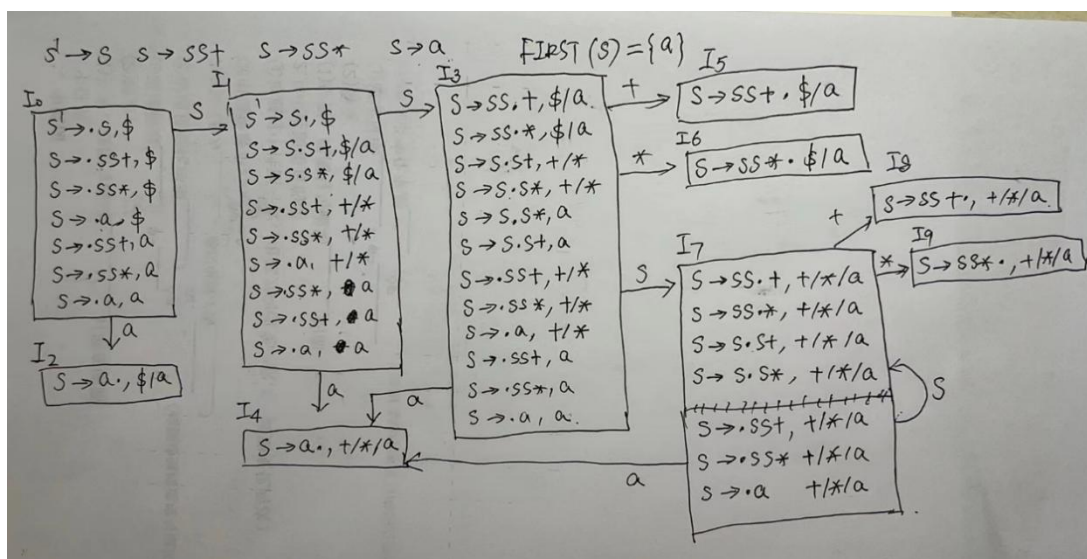 S' → S   S → SS+   S → SS*   S → a   FIRST(S) = {a}
I0
S' → ·S, $
S → ·SS+, $
S → ·SS*, $
S → ·a, $
S → ·SS+, a
S → ·SS*, a
S → ·a, a
S
a
I2
S → a·, $/a
I1
S' → S·, $
S → S·S+, $/a
S → S·S*, $/a
S → ·SS+, +/*
S → ·SS*, +/*
S → ·a, +/*
S → ·SS*, a
S → ·SS+, a
S → ·a, a
S
a
I4
S → a·, +/*/a
I3
S → SS·+, $/a
S → SS·*, $/a
S → S·S+, +/*
S → S·S*, +/*
S → S·S*, a
S → S·S+, a
S → ·SS+, +/*
S → ·SS*, +/*
S → ·a, +/*
S → ·SS+, a
S → ·SS*, a
S → ·a, a
+
*
S
a
I5
S → SS+· $/a
I6
S → SS*· $/a
I7
S → SS·+, +/*/a
S → SS·*, +/*/a
S → S·S+, +/*/a
S → S·S*, +/*/a
S → ·SS+, +/*/a
S → ·SS* +/*/a
S → ·a +/*/a
+
*
S
a
I8
S → SS+·, +/*/a
I9
S → SS*·, +/*/a